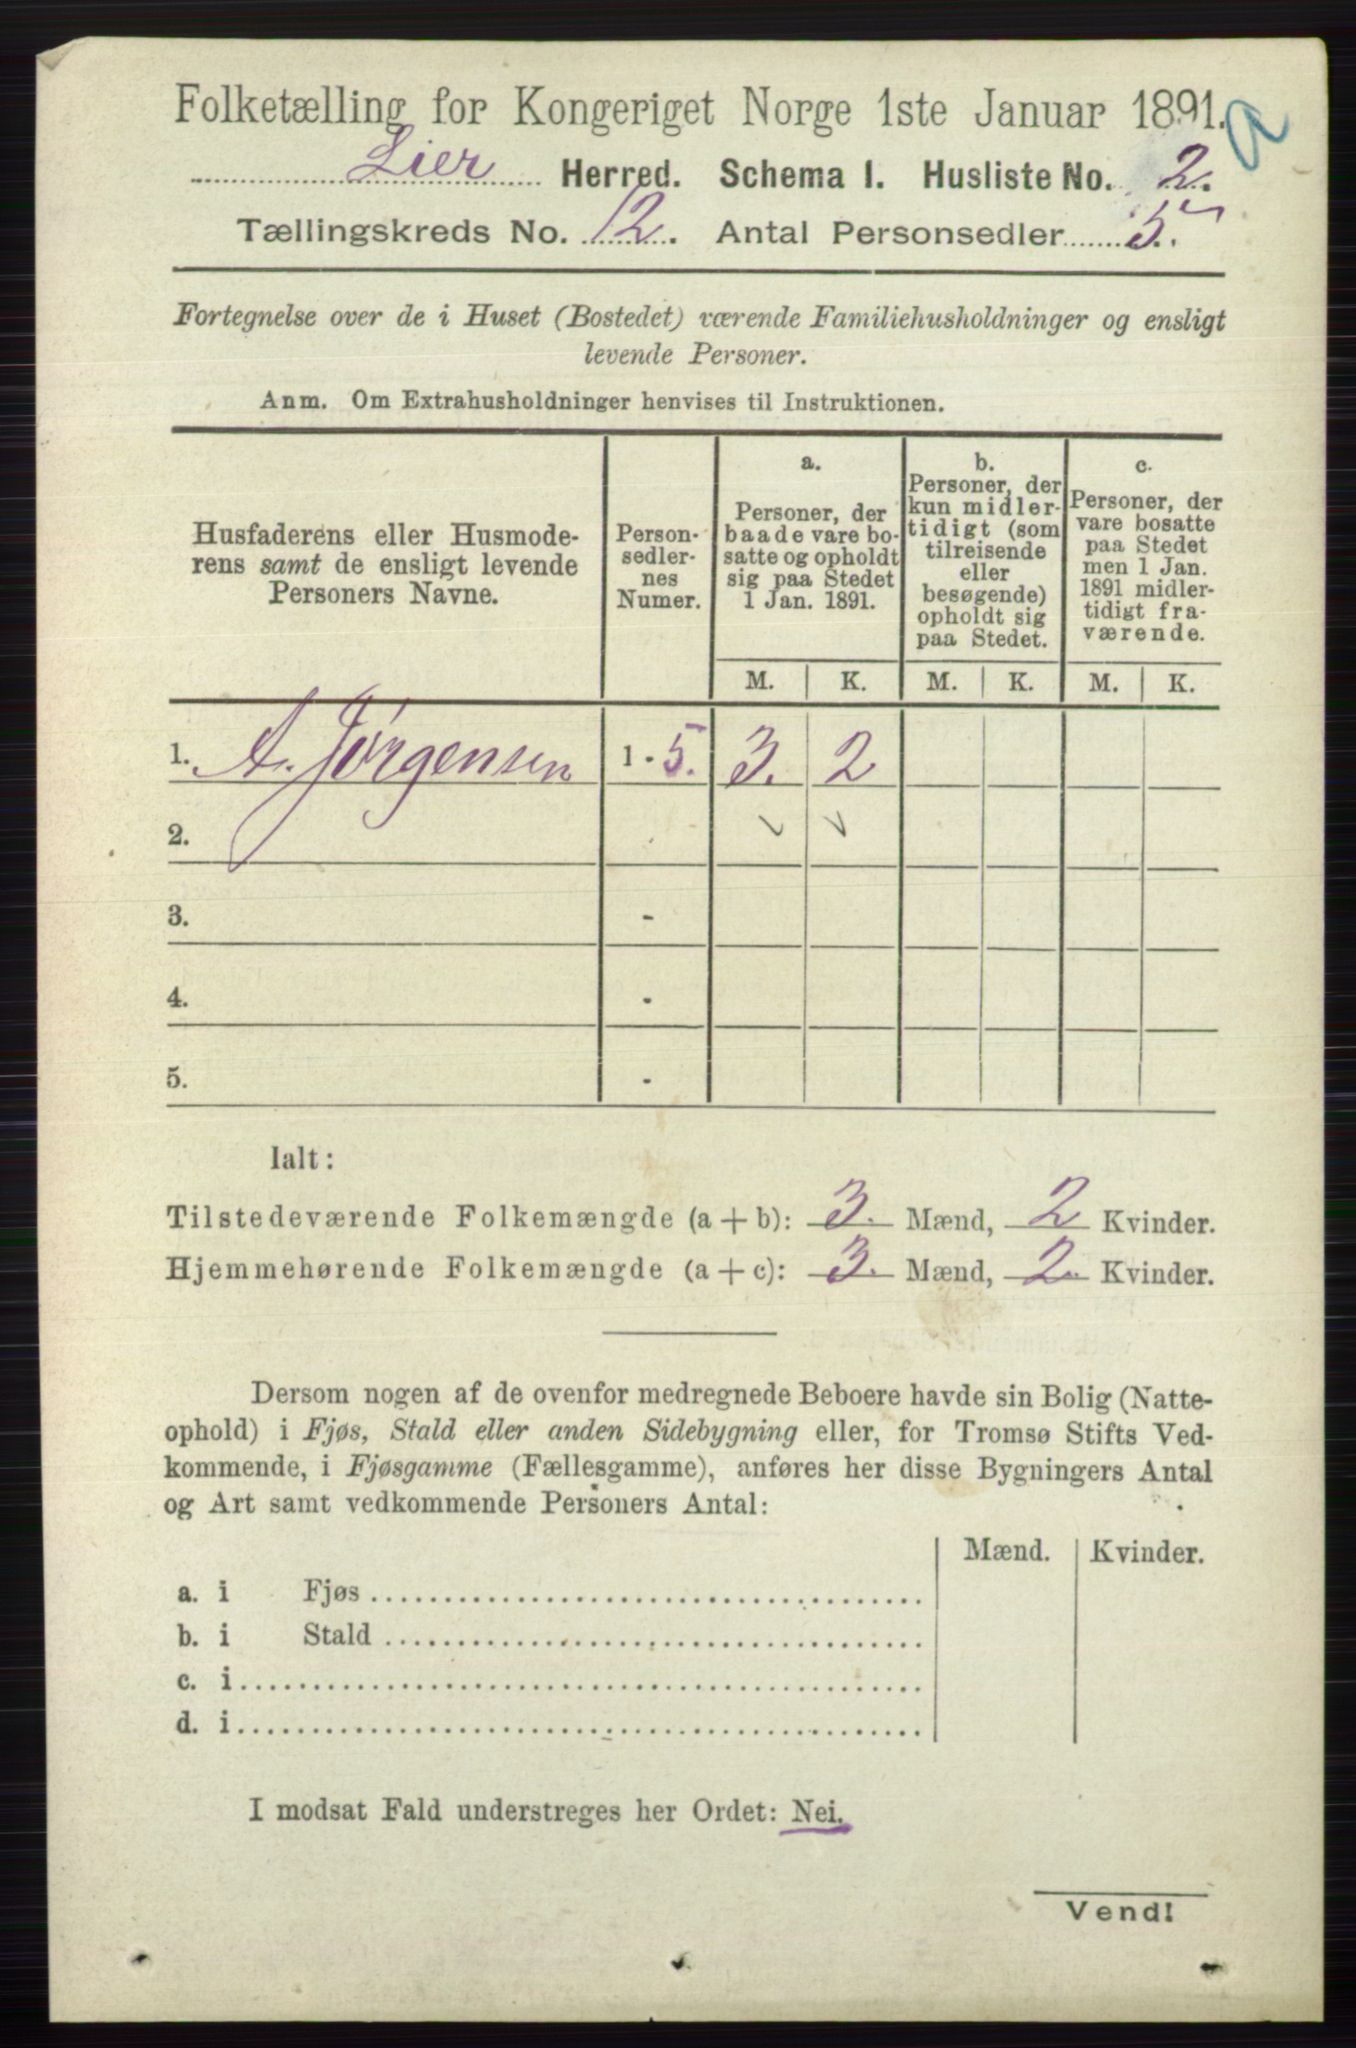 Folketælling for Kongeriget Norge 1ste Januar 1891.
a
Lier Herred. Schema I. Husliste No. 2.
Tællingskreds No. 12. Antal Personsedler 5.
Fortegnelse over de i Huset (Bostedet) værende Familiehusholdninger og ensligt
levende Personer.
Anm. Om Extrahusholdninger henvises til Instruktionen.
Husfaderens eller Husmode-
rens samt de ensligt levende
Personers Navne.
Person-
sedler-
nes
Numer.
a.
Personer, der
baade vare bo-
satte og opholdt
sig paa Stedet
1 Jan. 1891.
b.
Personer, der
kun midler-
tidigt (som
tilreisende
eller
besøgende)
opholdt sig
paa Stedet.
c.
Personer, der
vare bosatte
paa Stedet
men 1 Jan.
1891 midler-
tidigt fra-
værende.
M. K. M. K. M. K.
1. A. Jørgensen 1 - 5. 3. 2
2.
3. -
4. -
5. -
Ialt:
Tilstedeværende Folkemængde (a + b): 3. Mænd, 2 Kvinder.
Hjemmehørende Folkemængde (a + c): 3. Mænd, 2. Kvinder.
Dersom nogen af de ovenfor medregnede Beboere havde sin Bolig (Natte-
ophold) i Fjøs, Stald eller anden Sidebygning eller, for Tromsø Stifts Ved-
kommende, i Fjøsgamme (Fællesgamme), anføres her disse Bygningers Antal
og Art samt vedkommende Personers Antal:
Mænd. Kvinder.
a. i Fjøs
b. i Stald
c. i
d. i
I modsat Fald understreges her Ordet: Nei.
Vend!